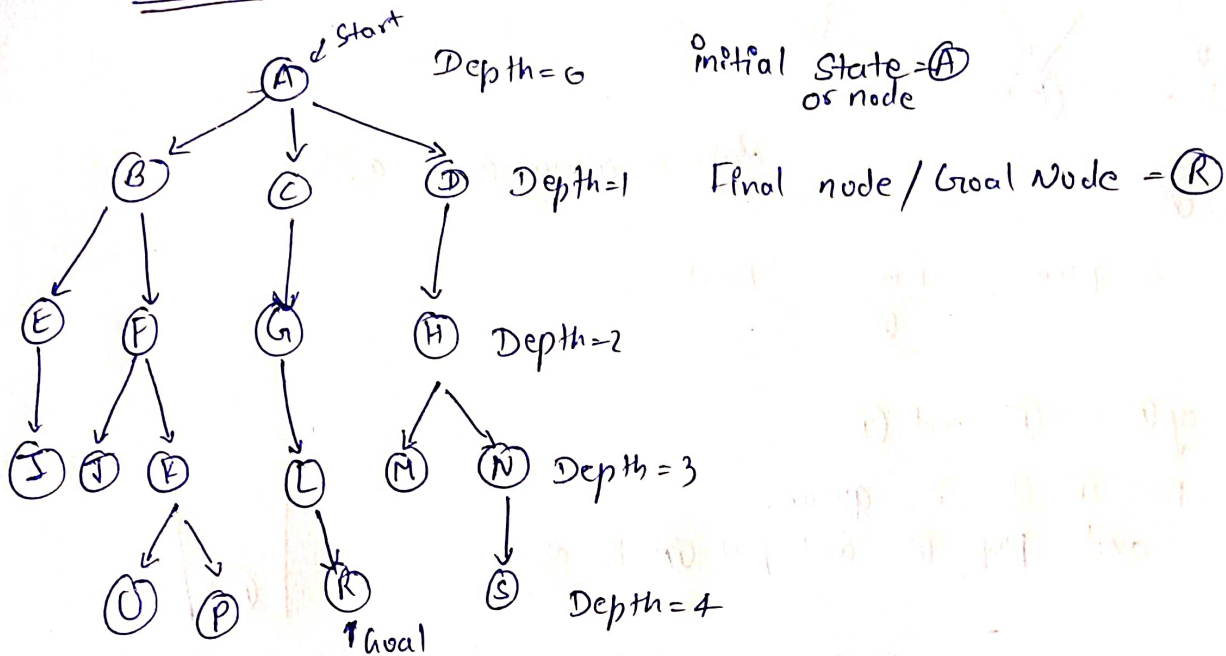 Start
A Depth=0 initial State=A
or node
B C D Depth=1 Final node/Goal Node = R
E F G H Depth=2
I J K L M N Depth=3
O P R S Depth=4
↑Goal